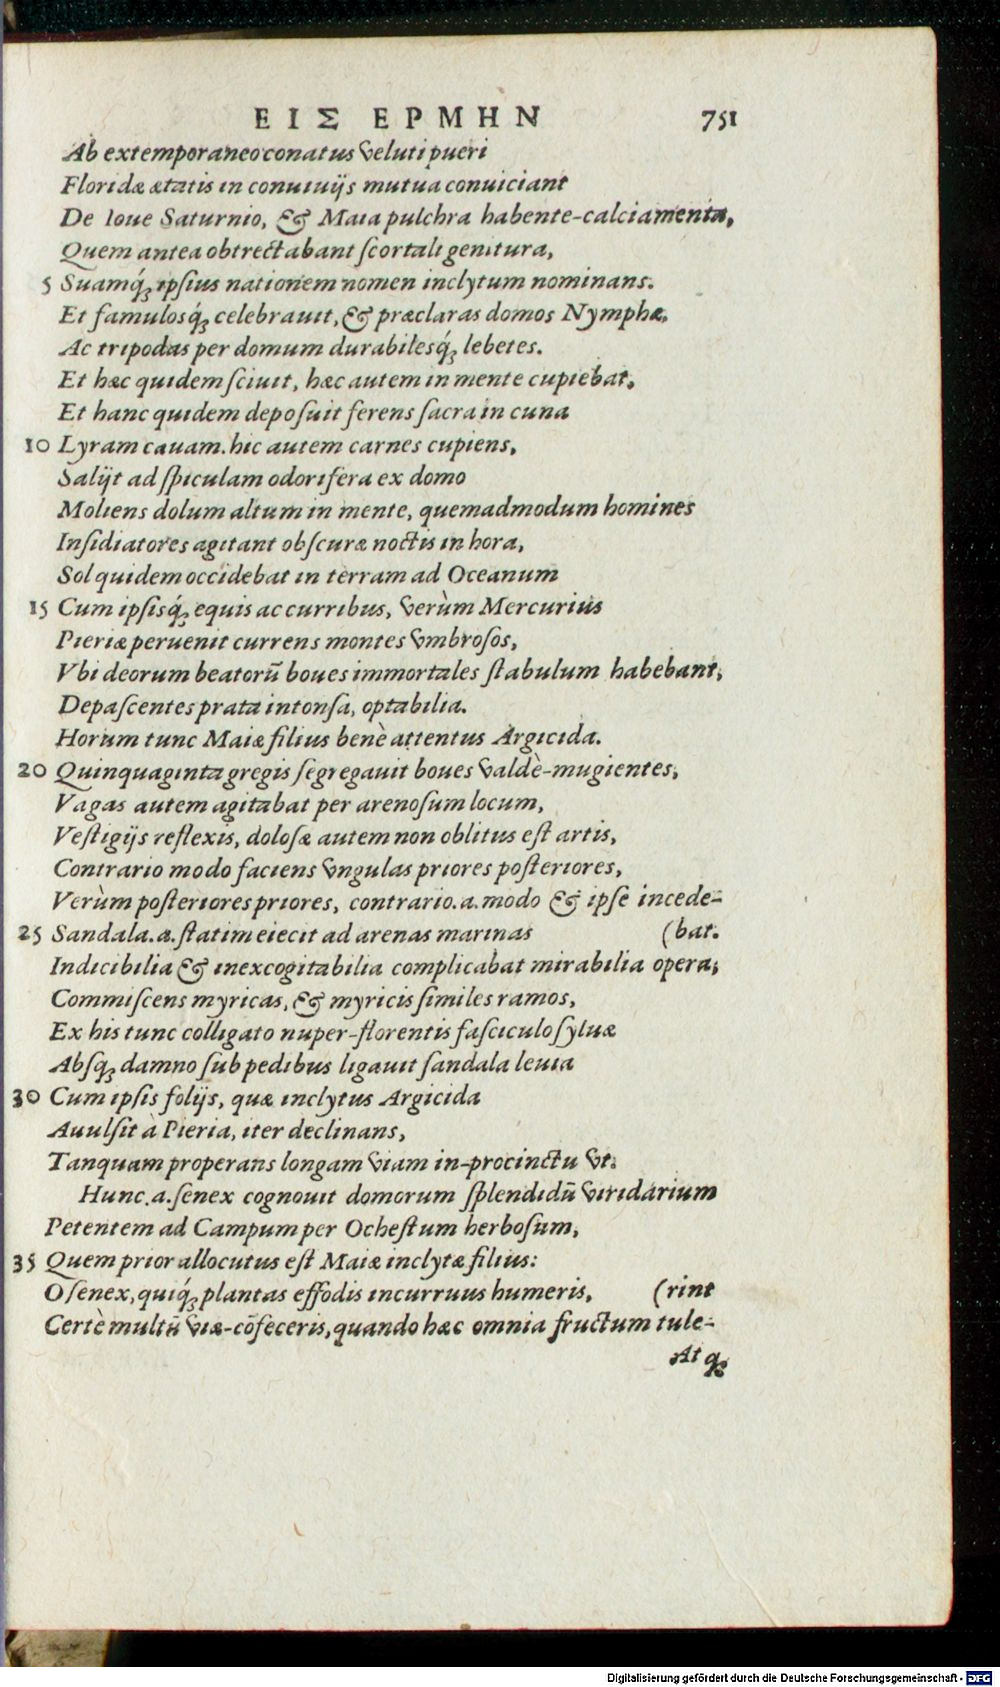 ΕΙΣ ΕΡΜΗΝ 751
Ab extemporaneo conatus veluti pueri
Floridæ ætatis in conuiuijs mutua conuiciant
De Ioue Saturnio, & Maia pulchra habente-calciamenta,
Quem antea obtrectabant ſcortali genitura,
5 Suamq́; ipſius nationem nomen inclytum nominans.
Et famulosq́; celebrauit, & præclaras domos Nymphæ,
Ac tripodas per domum durabilesq́; lebetes.
Et hæc quidem ſciuit, hæc autem in mente cupiebat.
Et hanc quidem depoſuit ferens ſacra in cuna
10 Lyram cauam. hic autem carnes cupiens,
Salijt ad ſpiculam odorifera ex domo
Moliens dolum altum in mente, quemadmodum homines
Inſidiatores agitant obſcuræ noctis in hora,
Sol quidem occidebat in terram ad Oceanum
15 Cum ipſisq́; equis ac curribus, verùm Mercurius
Pieriæ peruenit currens montes vmbroſos,
Vbi deorum beatorũ boues immortales ſtabulum habebant,
Depaſcentes prata intonſa, optabilia.
Horum tunc Maiæ filius benè attentus Argicida.
20 Quinquaginta gregis ſegregauit boues valdè-mugientes,
Vagas autem agitabat per arenoſum locum,
Veſtigijs reflexis, doloſæ autem non oblitus eſt artis,
Contrario modo faciens vngulas priores poſteriores,
Verùm poſteriores priores, contrario.a.modo & ipſe incede-
25 Sandala.a.ſtatim eiecit ad arenas marinas (bat.
Indicibilia & inexcogitabilia complicabat mirabilia opera,
Commiſcens myricas, & myricis ſimiles ramos,
Ex his tunc colligato nuper-florentis faſciculo ſyluæ
Abſq; damno ſub pedibus ligauit ſandala leuia
30 Cum ipſis folijs, quæ inclytus Argicida
Auulſit à Pieria, iter declinans,
Tanquam properans longam viam in-procinctu vt.
Hunc.a.ſenex cognouit domorum ſplendidũ viridarium
Petentem ad Campum per Ocheſtum herboſum,
35 Quem prior allocutus eſt Maiæ inclytæ filius:
O ſenex, quiq́; plantas effodis incurruus humeris, (rint
Certè multũ viæ-cõfeceris, quando hæc omnia fructum tule-
Atq;
Digitalisierung gefördert durch die Deutsche Forschungsgemeinschaft - DFG